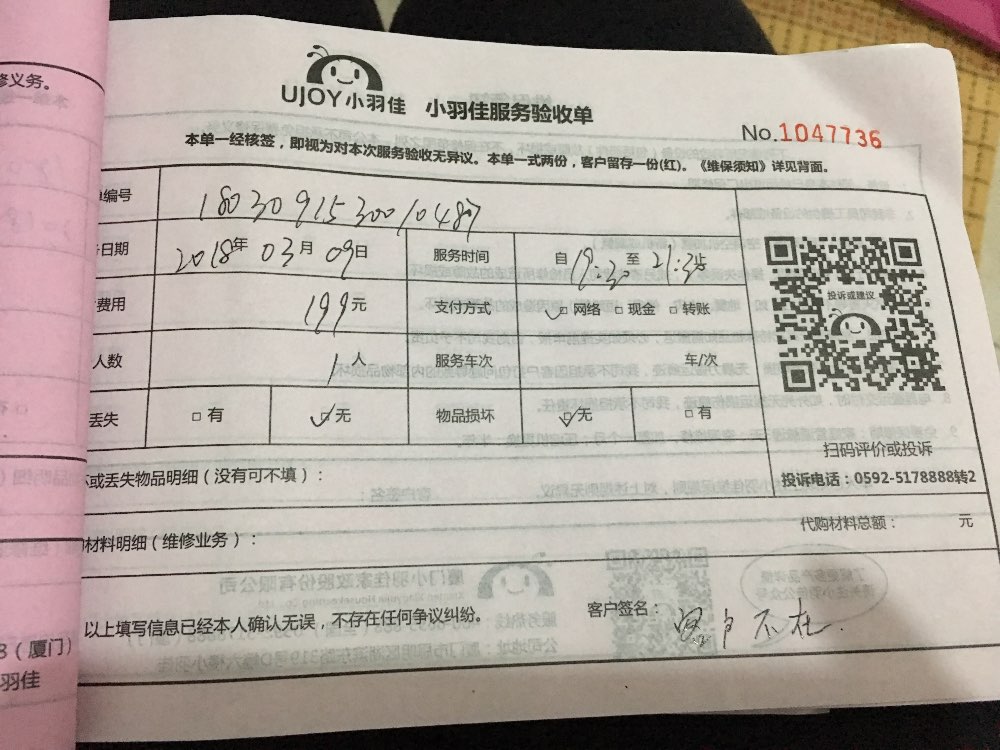 修义务。
UJOY小羽佳 小羽佳服务验收单
No.1047736
本单一经核签，即视为对本次服务验收无异议。本单一式两份，客户留存一份(红)。《维保须知》详见背面。
编号 1803091530010487
日期 2018年03月09日 服务时间 自19:30至21:3止
费用 199元 支付方式 网络 现金 转账
人数 1人 服务车次 车/次
丢失 有 无 物品损坏 无 有
投诉或建议
扫码评价或投诉
投诉电话：0592-5178888转2
或丢失物品明细（没有可不填）：
材料明细（维修业务）： 代购材料总额： 元
以上填写信息已经本人确认无误，不存在任何争议纠纷。 客户签名：客户不在
（厦门）
羽佳